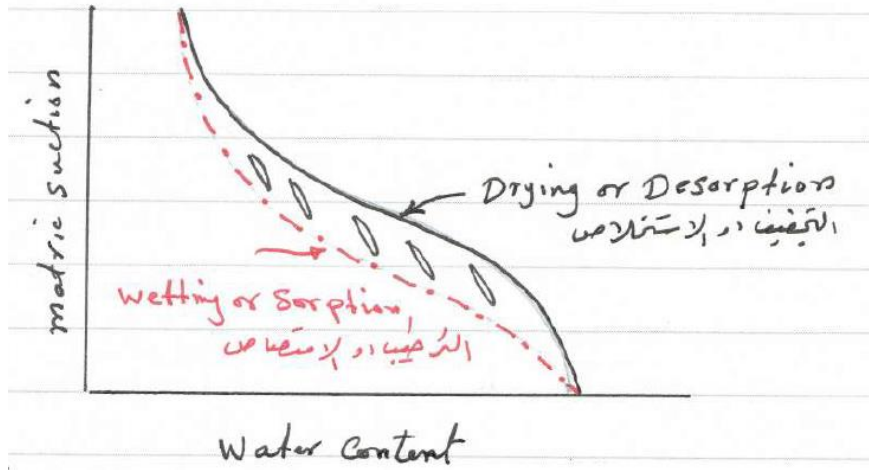 Matric Suction
Drying or Desorption
التجفيف او الاستخلاص
Wetting or Sorption
الترطيب او الامتصاص
Water Content